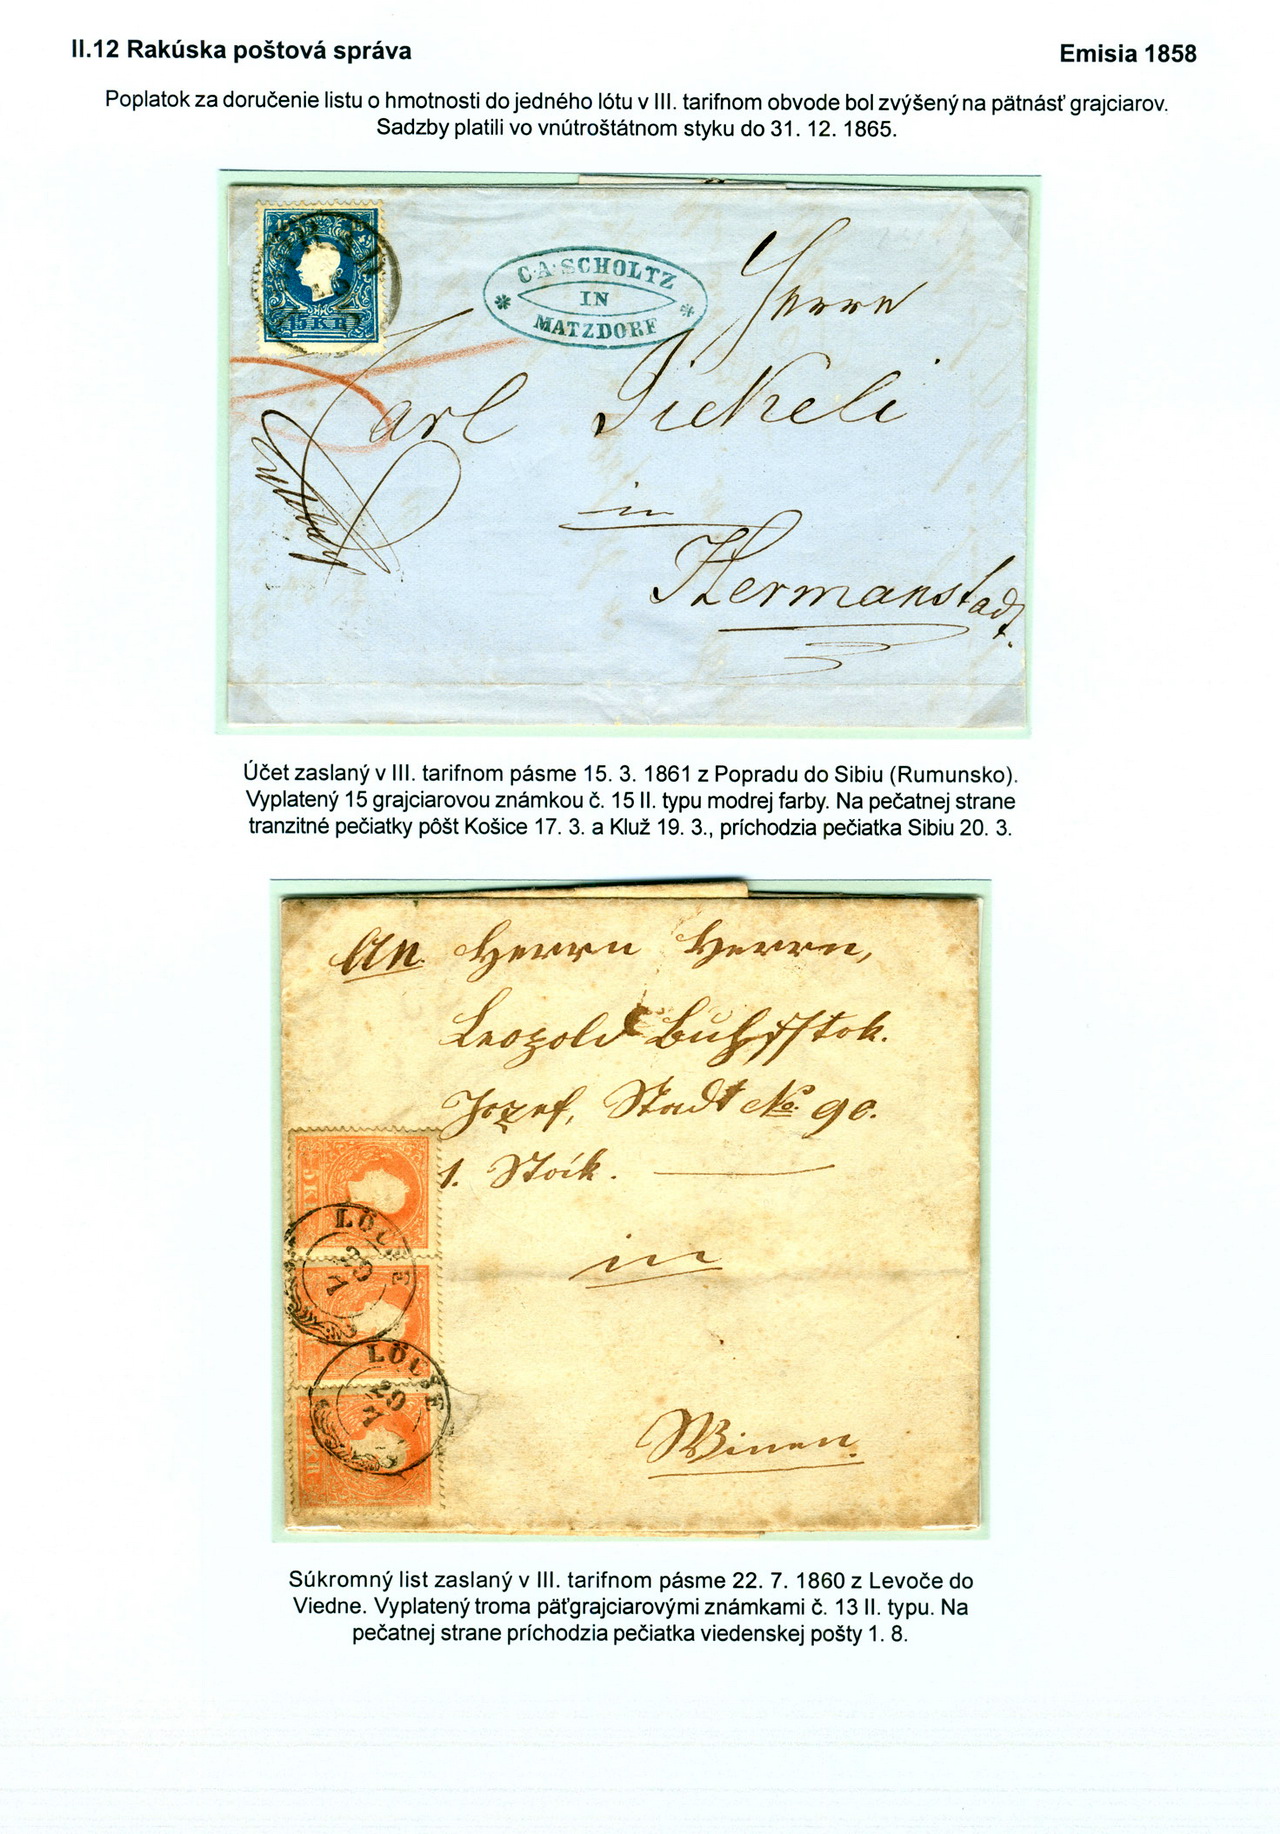 II.12 Rakúska poštová správa
Emisia 1858
Poplatok za doručenie listu o hmotnosti do jedného lótu v III. tarifnom obvode bol zvýšený na pätnásť grajciarov.
Sadzby platili vo vnútroštátnom styku do 31. 12. 1865.
15 KR
C. A. SCHOLTZ
IN
MATZDORF
Herrn
Carl Sickeli
in
Hermanstadt.
Účet zaslaný v III. tarifnom pásme 15. 3. 1861 z Popradu do Sibiu (Rumunsko).
Vyplatený 15 grajciarovou známkou č. 15 II. typu modrej farby. Na pečatnej strane
tranzitné pečiatky pôšt Košice 17. 3. a Kluž 19. 3., príchodzia pečiatka Sibiu 20. 3.
An Herrn Herrn,
Leopold
Jozef, Stadt No. 90.
1. Stock.
in
Winen.
LÖCSE
7
LÖCSE
29
7
Súkromný list zaslaný v III. tarifnom pásme 22. 7. 1860 z Levoče do
Viedne. Vyplatený troma päťgrajciarovými známkami č. 13 II. typu. Na
pečatnej strane príchodzia pečiatka viedenskej pošty 1. 8.